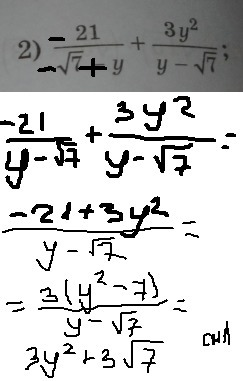 2) - 21 / - √7 + y + 3y² / y - √7 ;
-21 / y - √7 + 3y² / y - √7 =
-21 + 3y² / y - √7 =
= 3(y² - 7) / y - √7 =
3y + 3√7